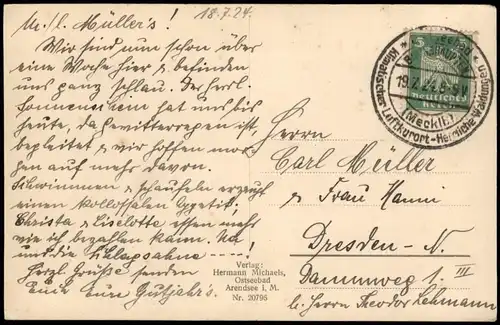 M./l. Müller's! 18.7.24.
Wir sind nun schon über
eine Woche hier & befinden
uns ganz schlau. Der herrl.
Sonnenschein hat uns bis
heute, da Gewitterregen ist,
begleitet & wir hoffen mor-
gen auf mehr davon.
Schwimmen & schaufeln erzeugt
einen kollossalen Appetit,
Christa & Liselotte essen mehr
wie ich bezahlen kann. Na
und die Schlagsahne ----!
Herzl. Grüße senden
Euch Eure Gutjahr's.
Verlag:
Hermann Michaels,
Ostseebad
Arendsee i. M.
Nr. 20796
5
Deutsches
Reich
19.7.24.8-9V
(Meckl.)
Klimatischer Luftkurort-Herrliche Waldungen
Herrn
Carl Müller
& Frau Hanni
Dresden-N.
Dammweg 1 III
b. Herrn Theodor Lehmann